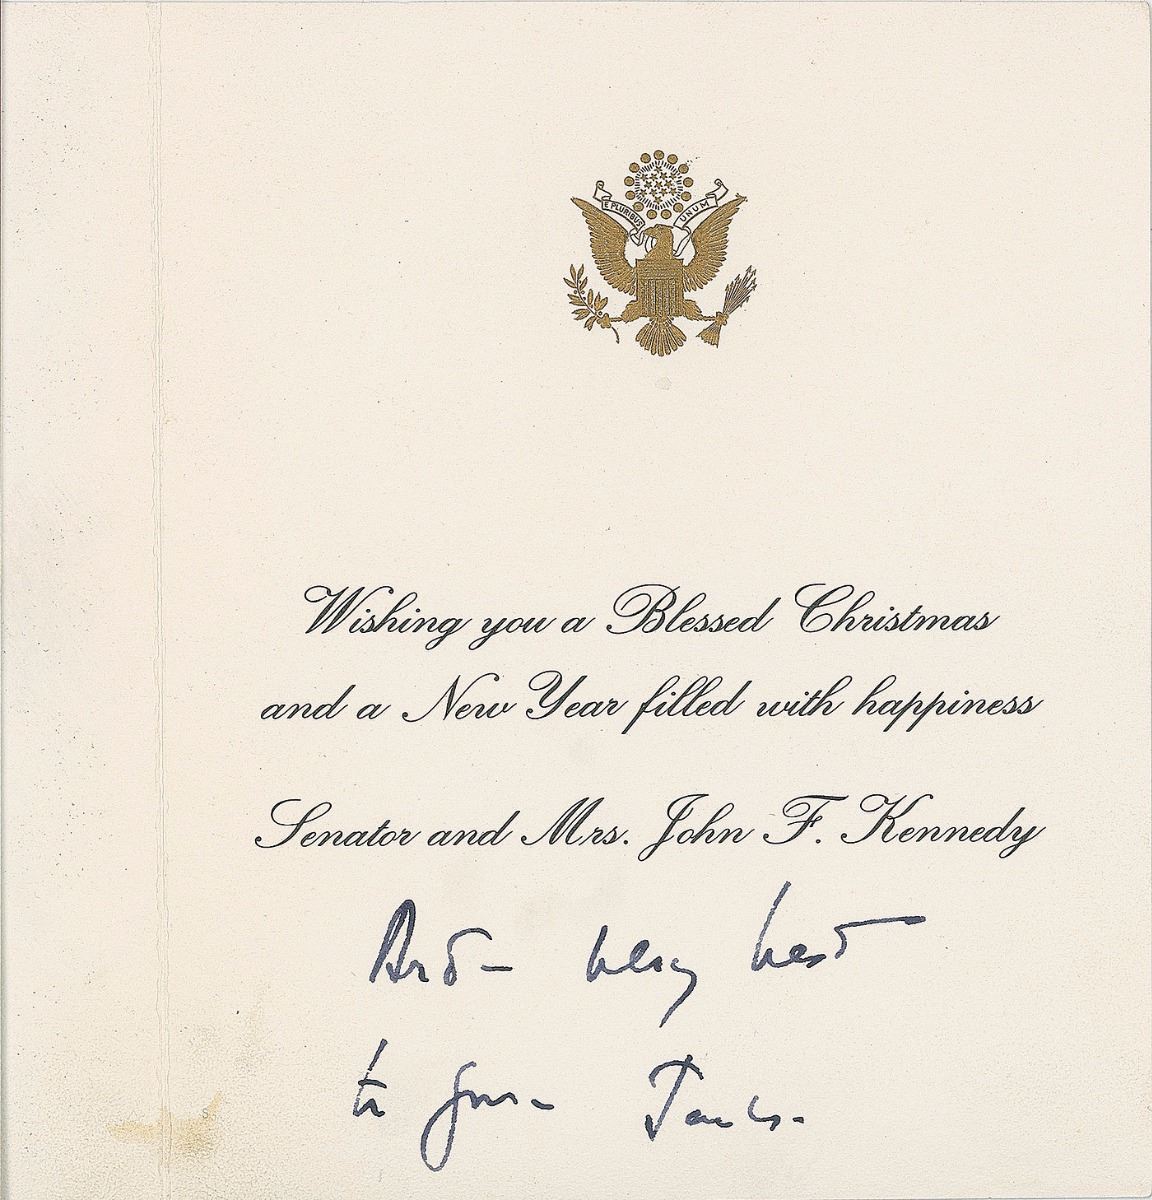 E PLURIBUS UNUM
Wishing you a Blessed Christmas
and a New Year filled with happiness
Senator and Mrs. John F. Kennedy
very best
to